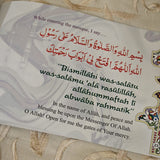 While entering the mosque, I say...
بِسْمِ اللهِ وَالصَّلَاةُ وَالسَّلَامُ عَلَى رَسُولِ
اللهِ اَللّٰهُمَّ افْتَحْ لِي اَبْوَابَ رَحْمَتِكَ
"Bismillāhi was-salātu
was-salāmu 'alā rasūlillāh,
allāhummaftah lī
abwāba rahmatik"
In the name of Allah, and peace and
blessing be upon the Messenger Of Allah.
O Allah! Open for me the gates of Your mercy.